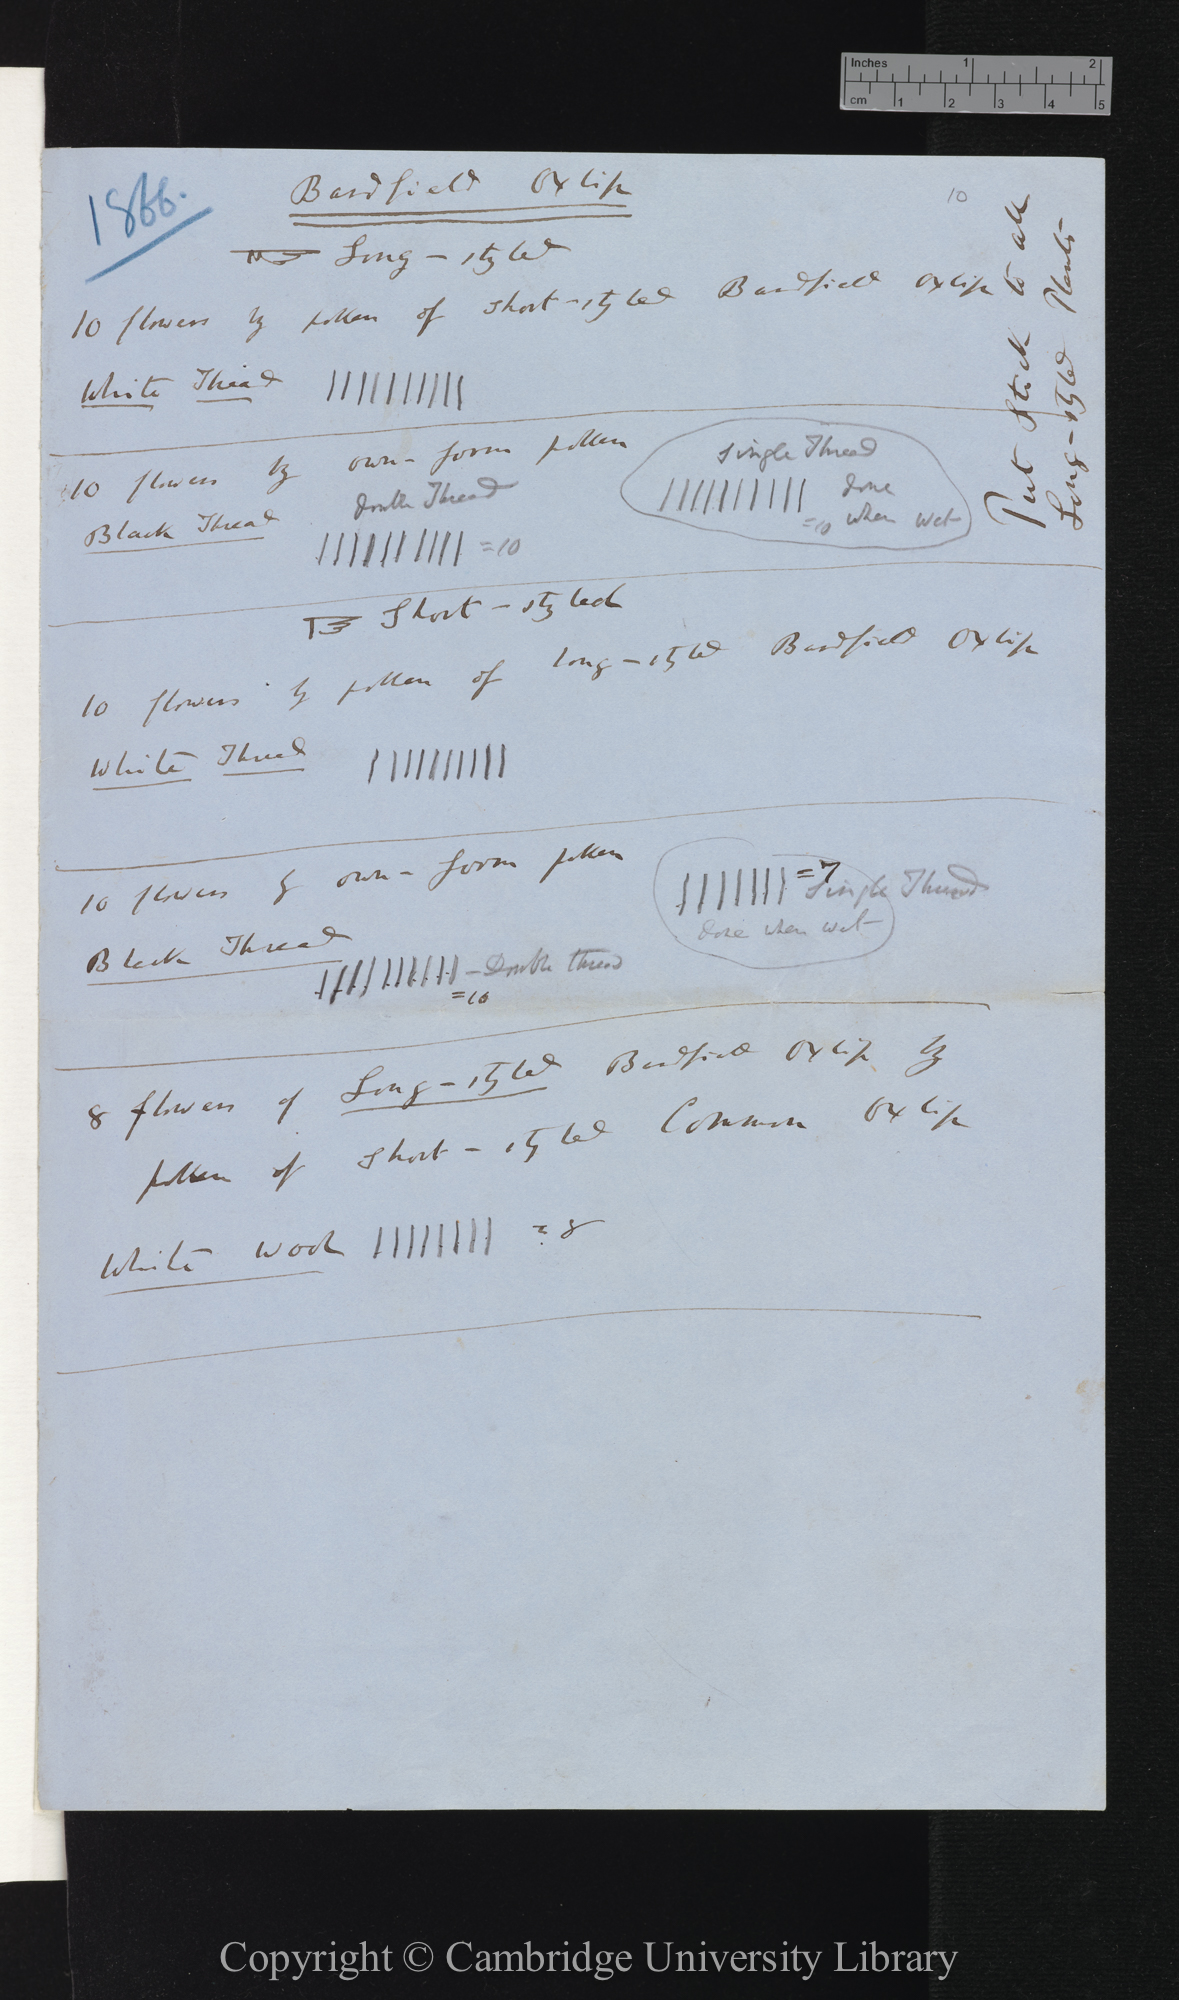 Inches 1 2
cm 1 2 3 4 5
1866.
Bardfield Oxlip
10
Long-styled
10 flowers by pollen of short-styled Bardfield Oxlip
White Thread
Put Stick to all
Long-styled Plants
10 flowers by own-form pollen
Black Thread
double Thread
=10
Single Thread
done
=10 when wet
Short-styled
10 flowers by pollen of long-styled Bardfield Oxlip
White Thread
10 flowers by own-form pollen
Black Thread
- Double thread
=10
=7
Single Thread
done when wet
8 flowers of Long-styled Bardfield Oxlip by
pollen of short-styled Common Oxlip
White Wool = 8
Copyright © Cambridge University Library